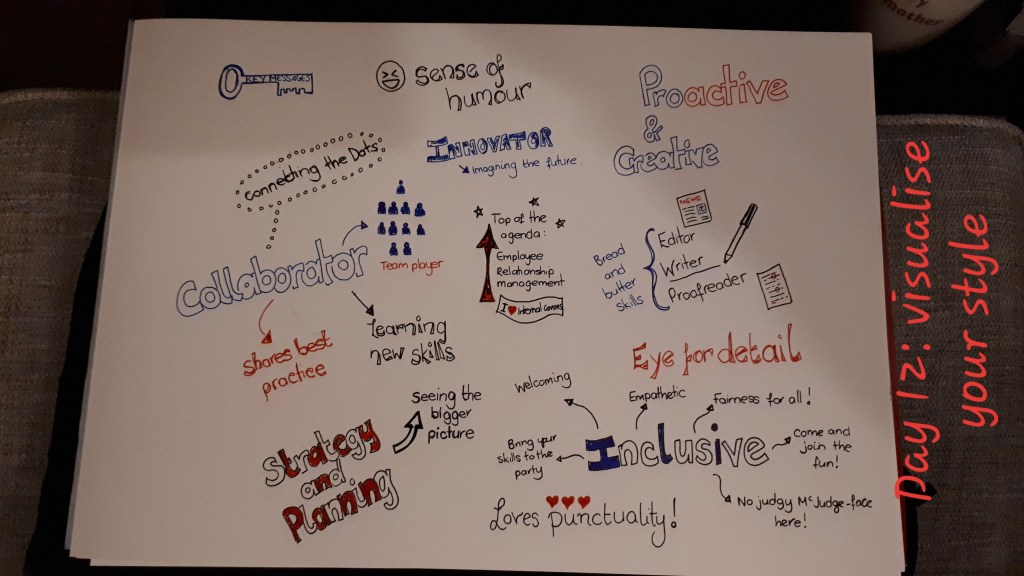 KEY MESSAGES
Sense of
humour
Proactive
&
Creative
INNOVATOR
Imagining the future
Connecting the Dots
Collaborator
Team player
shares best
practice
learning
new skills
Top of the
agenda:
Employee
Relationship
management
I ♥ internal comms
Bread
and
butter
skills
NEWS
Editor
Writer
Proofreader
Eye for detail
Strategy
and
Planning
Seeing the
bigger
picture
Welcoming
Empathetic
Fairness for all!
Bring your
skills to the
party
Inclusive
Come and
join the
fun!
No judgy McJudge-face
here!
Loves punctuality!
Day 12: visualise
your style
mother